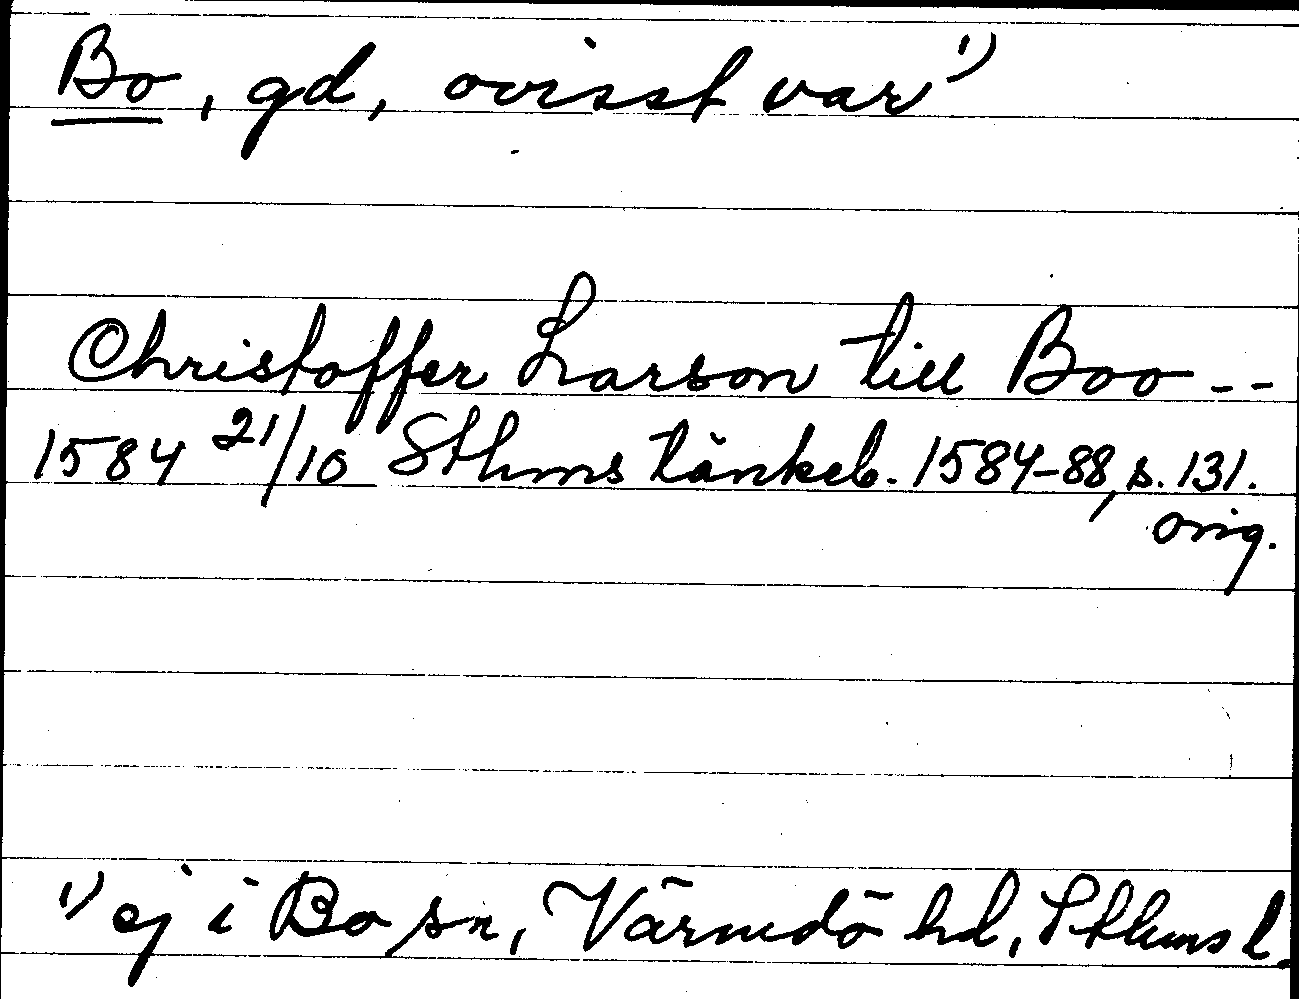 Bo, gd, ovisst var 1)
Christoffer Larson till Boo --
1584 21/10 Sthms tänkeb. 1584-88, s. 131.
orig.
1) ej i Bo sn, Värmdö hd, Sthms l.